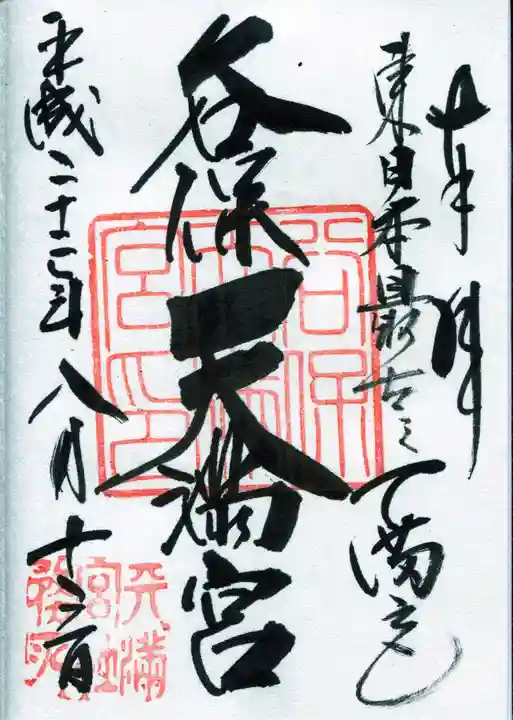 奉拝
東日本最古之天満宮
谷保天満宮
平成二十二年八月
谷保天満宮印
天満宮社務所